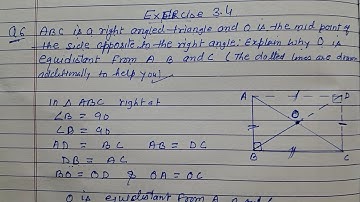 Exercise 3.4
Q.6 ABC is a right angled triangle and O is the mid point of
the side opposite to the right angle. Explain why O is
equidistant from A B and C (The dotted lines are drawn
additionally to help you)
In Δ ABC right at
∠B = 90
∠D = 90
AD = BC AB = DC
DB = AC
BO = OD & OA = OC
O is equidistant from A
A
D
O
B
C